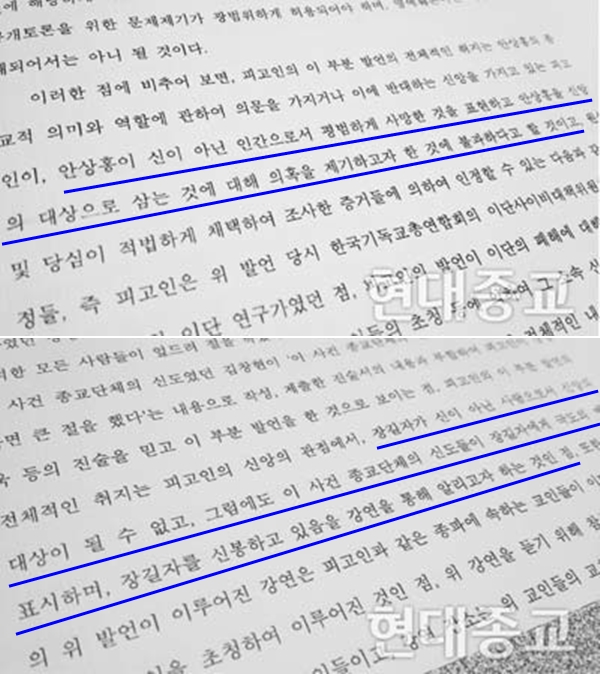 공개토론을 위한 문제제기가 광범위하게 허용되어야 하며,
되어서는 아니 될 것이다.
이러한 점에 비추어 보면, 피고인의 이 부분 발언의 전체적인 취지는 안상홍의 종
교적 의미와 역할에 관하여 의문을 가지거나 이에 반대하는 신앙을 가지고 있는 피고
인이, 안상홍이 신이 아닌 인간으로서 평범하게 사망한 것을 표현하고 안상홍을 신앙
의 대상으로 삼는 것에 대해 의혹을 제기하고자 한 것에 불과하다고 할 것이고,
및 당심이 적법하게 채택하여 조사한 증거들에 의하여 인정할 수 있는 다음과 같
정들, 즉 피고인은 위 발언 당시 한국기독교총연합회의 이단사이비대책위원
이단 연구가였던 점, 피고인의 발언이 이단의 폐해에 대해
현대종교
초청
전체적인
한 모든 사람들이 엎드려 절을
사건 종교단체의 신도였던 김창현이 '이 사건 종교단체의
면 큰 절을 했다'는 내용으로 작성, 제출한 진술서의 내용과 부합하여
등의 진술을 믿고 이 부분 발언을 한 것으로 보이는 점, 피고인의 이 부분 발언의
전체적인 취지는 피고인의 신앙의 관점에서, 장길자가 신이 아닌 사람으로서 신앙의
대상이 될 수 없고, 그럼에도 이 사건 종교단체의 신도들이 장길자에게 극도의
표시하며, 장길자를 신봉하고 있음을 강연을 통해 알리고자 하는 것인 점, 또한
의 위 발언이 이루어진 강연은 피고인과 같은 종파에 속하는 교인들이
을 초청하여 이루어진 것인 점, 위 강연을 듣기 위해 참
현대종교
이들이고, 위 교인들의